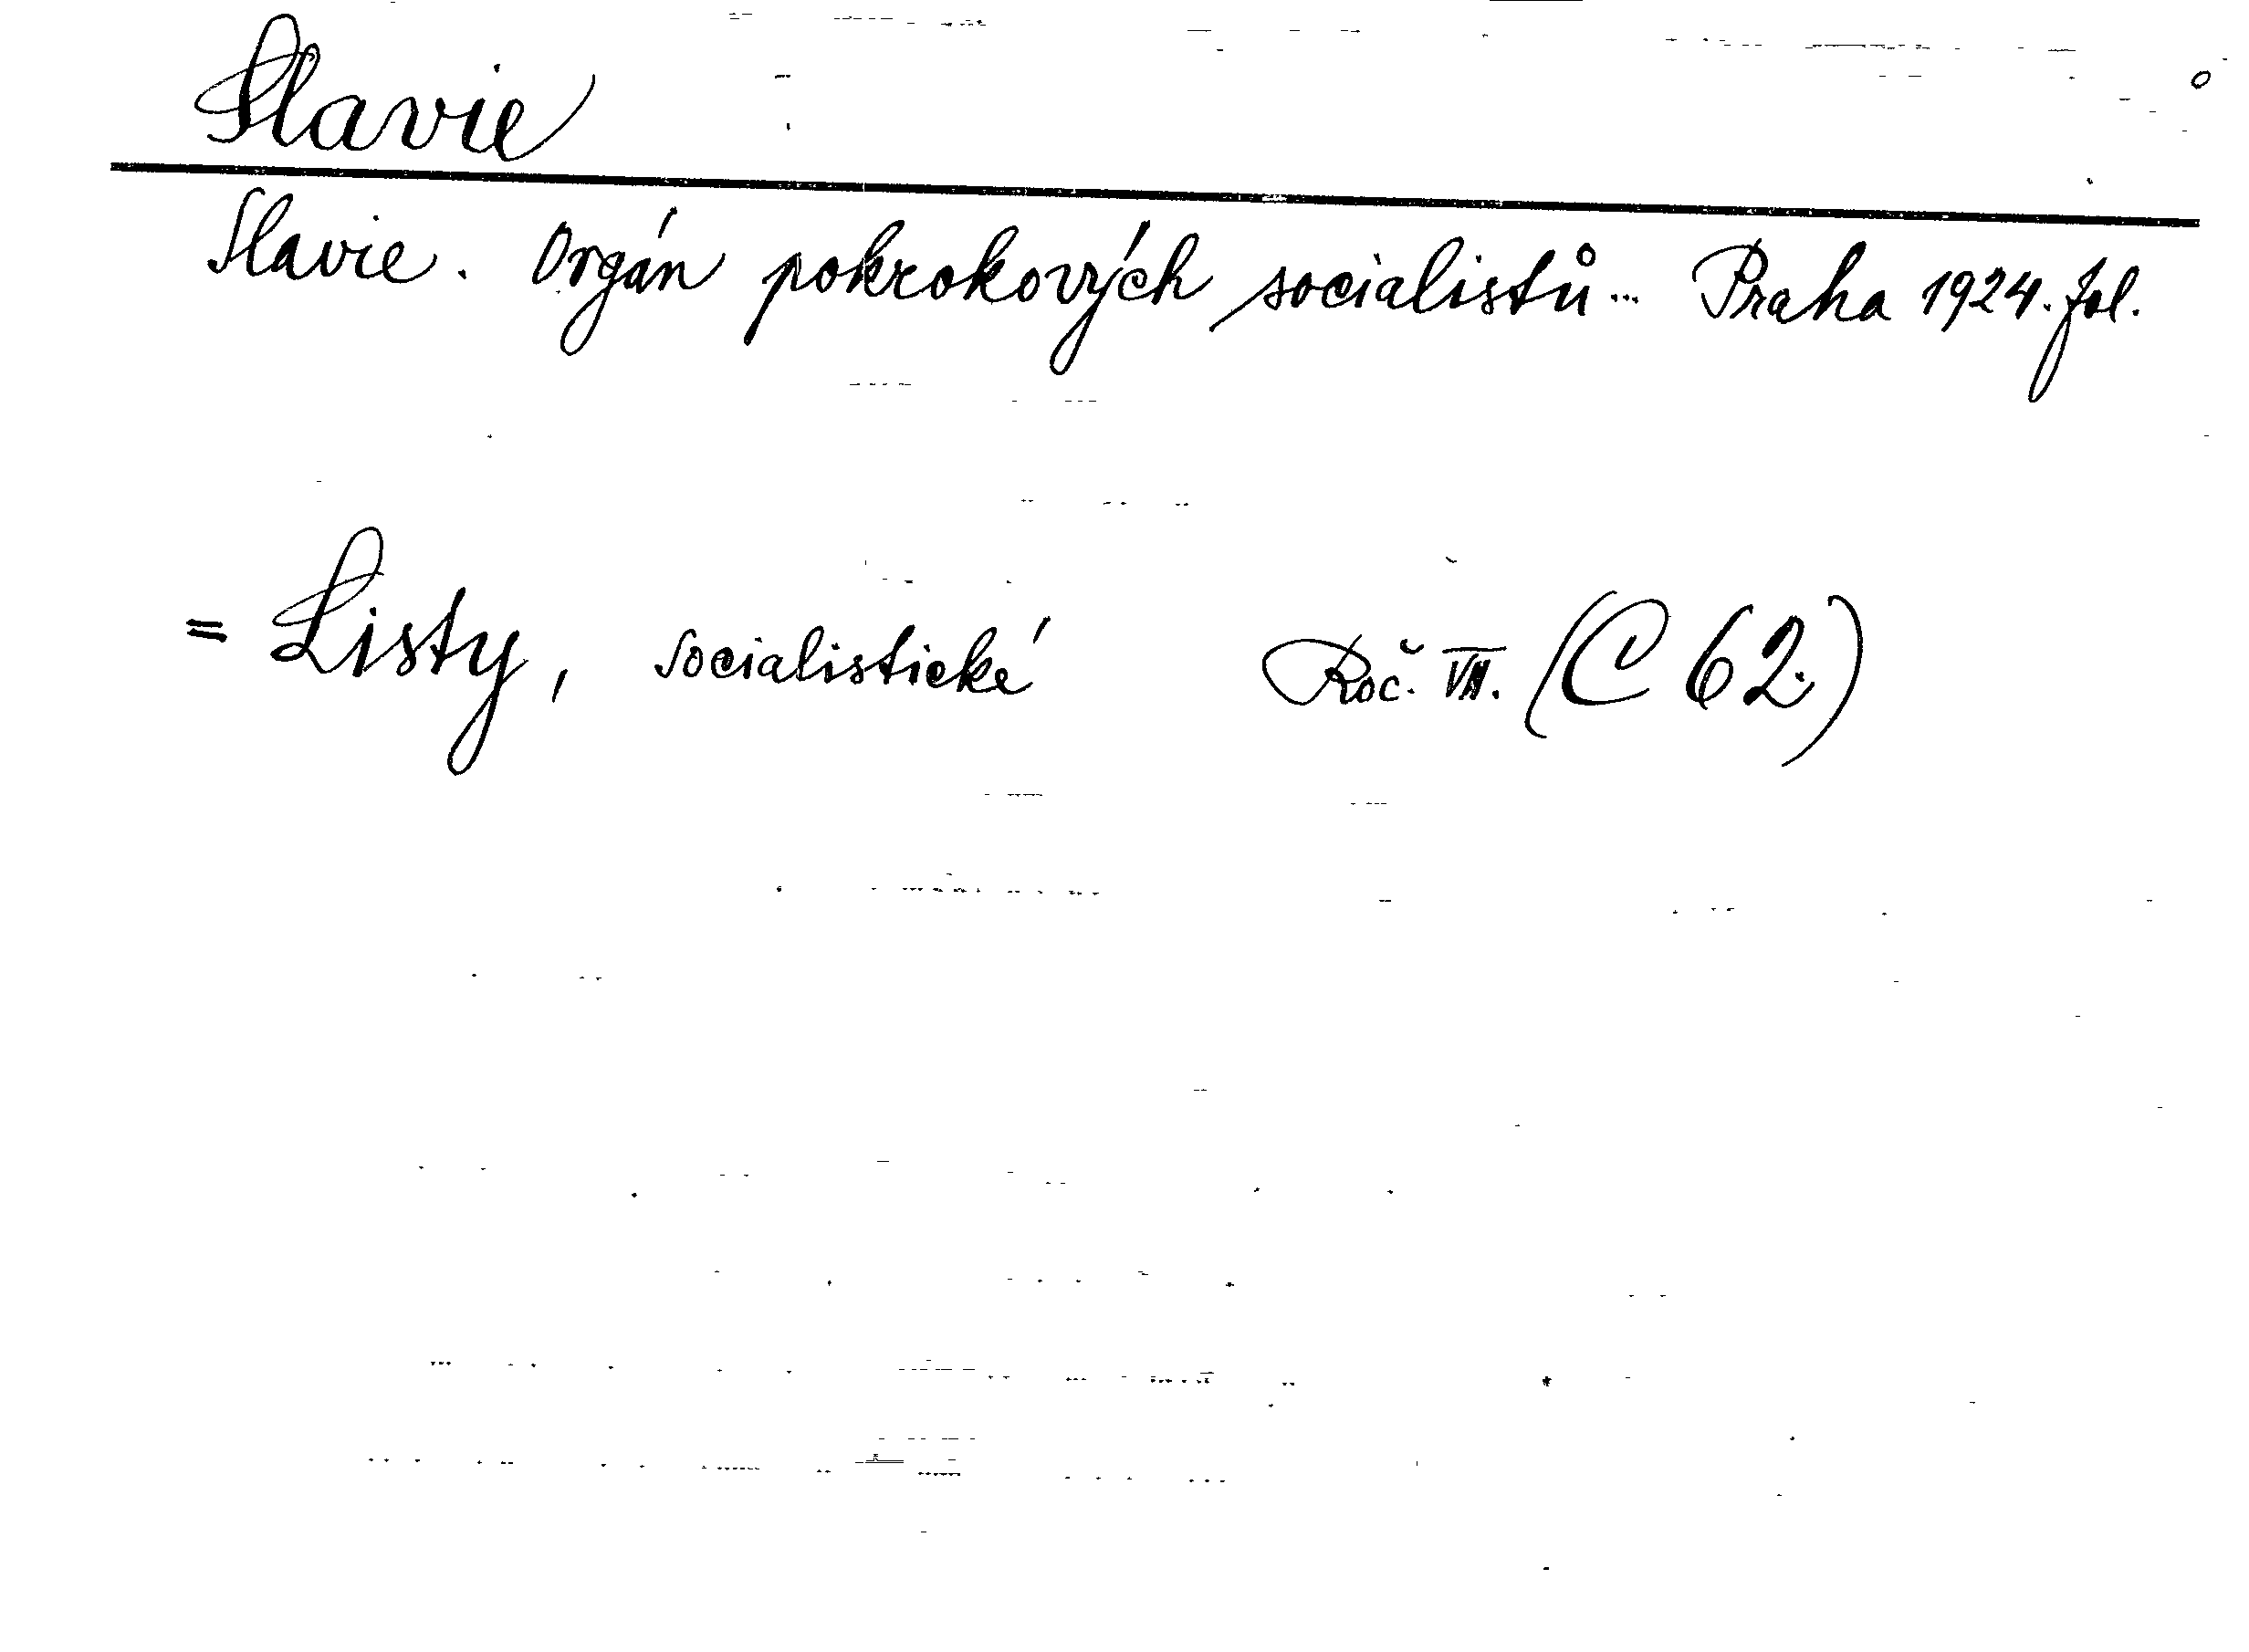 Slavie
Slavie. Orgán pokrokových socialistů... Praha 1924. fol.
= Listy, socialistické Roč. VII. (C 62.)